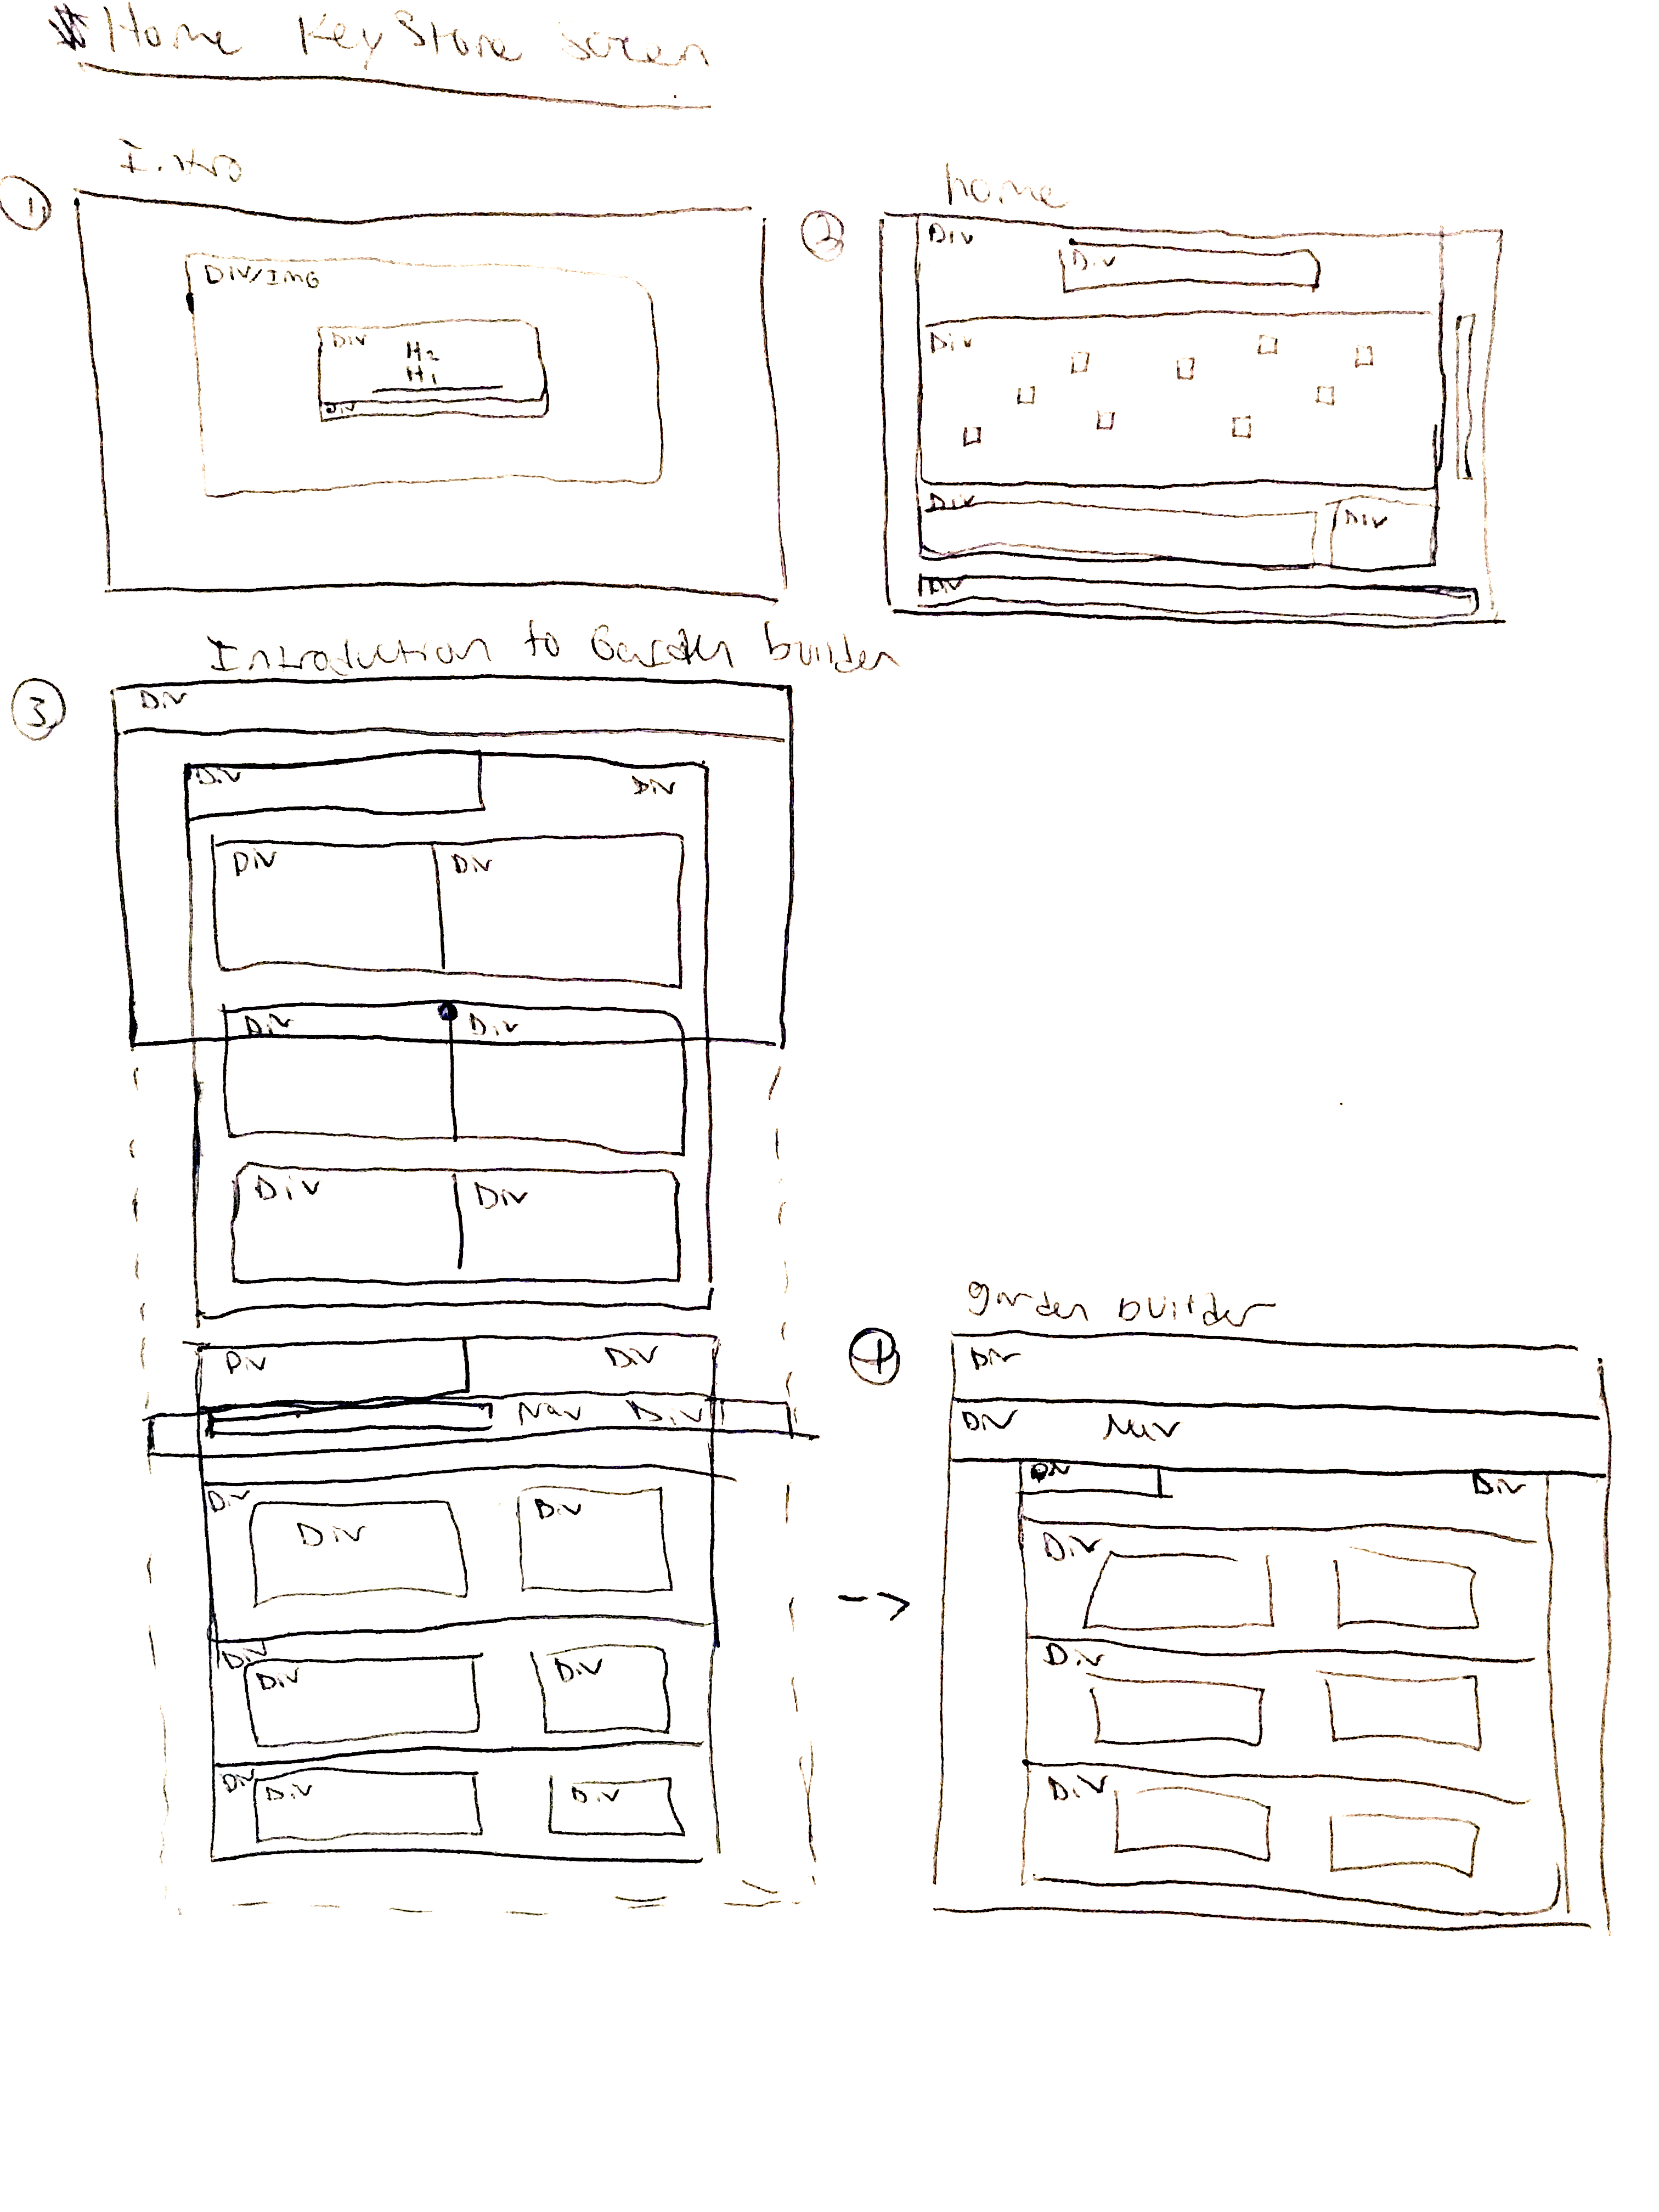 # Home KeyStone Screen
Intro
1
Div/Img
Div
H2
H1
Div
home
2
Div
Div
Div
Div
Div
Div
Introduction to Garden builder
3
Div
Div Div
Div Div
Div Div
Div Div
Div Div
Nav Div
Div
Div Div
Div
Div Div
Div
Div Div
garden builder
4
Div
Div Nav
Div Div
Div
Div
Div